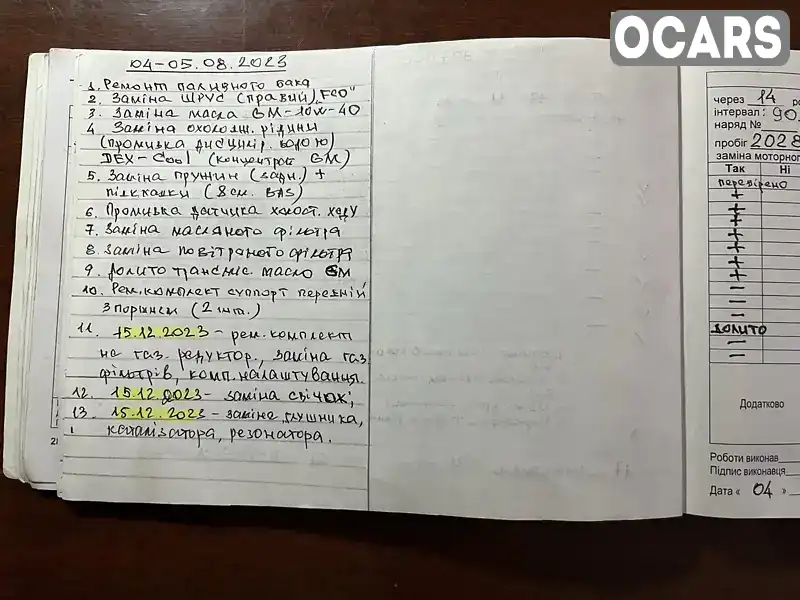 OCARS
04-05.08.2023
1. Ремонт паливного бака
2. Заміна ШРУС (правий)
3. Заміна масла GM-10W-40
4. Заміна охолодж. рідини
(промивка дисцилір. водою)
DEX-Cool (концентрат GM)
5. Заміна пружин (задн.) +
підкладки (8см.
6. Промивка датчика холост. ходу
7. Заміна масляного фільтра
8. Заміна повітряного фільтра
9. Долито трансміс. масло GM
10. Рем.комплект суппорт передній
з поршнем (2 шт.)
11. 15.12.2023 - рем.комплект
на газ. редуктор., заміна газ.
фільтрів, комп.налаштування.
12. 15.12.2023 - заміна свічок;
13. 15.12.2023 - заміна глушника,
каталізатора, резонатора.
через 14 ро
інтервал: 90.
наряд №
пробіг 2028
заміна моторног
Так Ні
перевірено
+
+
+
+
+
+
+
—
—
—
долито
—
—
Додатково
Роботи виконав
Підпис виконавця
Дата « 04 »